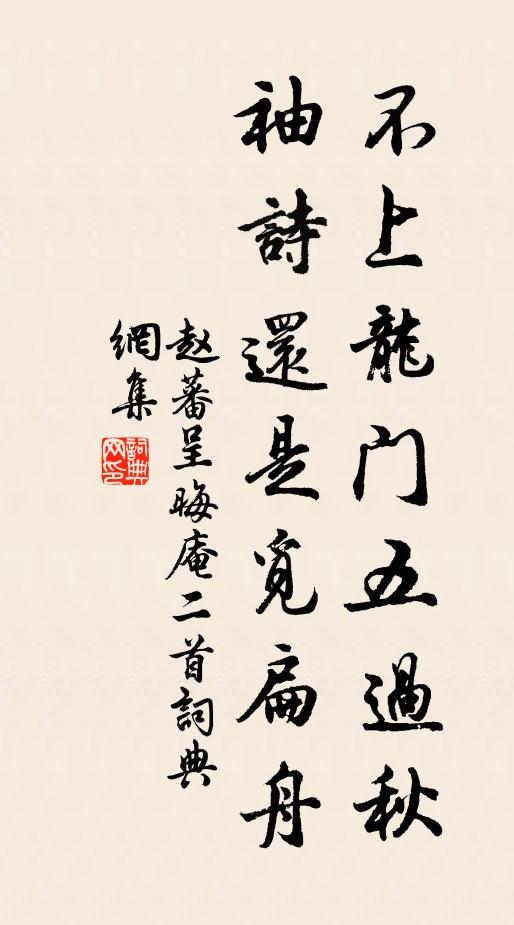 不上龍门五過秋
袖詩還是覓扁舟
赵蕃呈晦庵二首詞典
網集
詞典网印